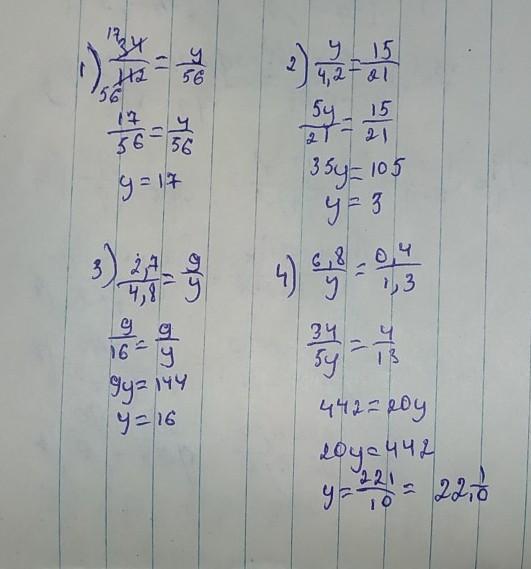 1) 34/112 = y/56 17 56
17/56 = y/56
y = 17
2) y/4,2 = 15/21
5y/21 = 15/21
35y = 105
y = 3
3) 2,7/4,8 = 9/y
9/16 = 9/y
9y = 144
y = 16
4) 6,8/y = 0,4/1,3
34/5y = 4/13
442 = 20y
20y = 442
y = 221/10 = 22 1/10